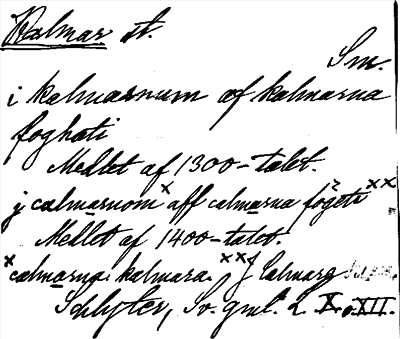 Kalmar st.
Sm.
i kalmarnum af kalmarna
foghati
Mellet af 1300-talet.
j calmarnom x aff calmarna fogete xx
Mellet af 1400-talet.
x calmarna. kalmara. xx j calmarg
Schlyter, Sv. gml. L. X o. XII.